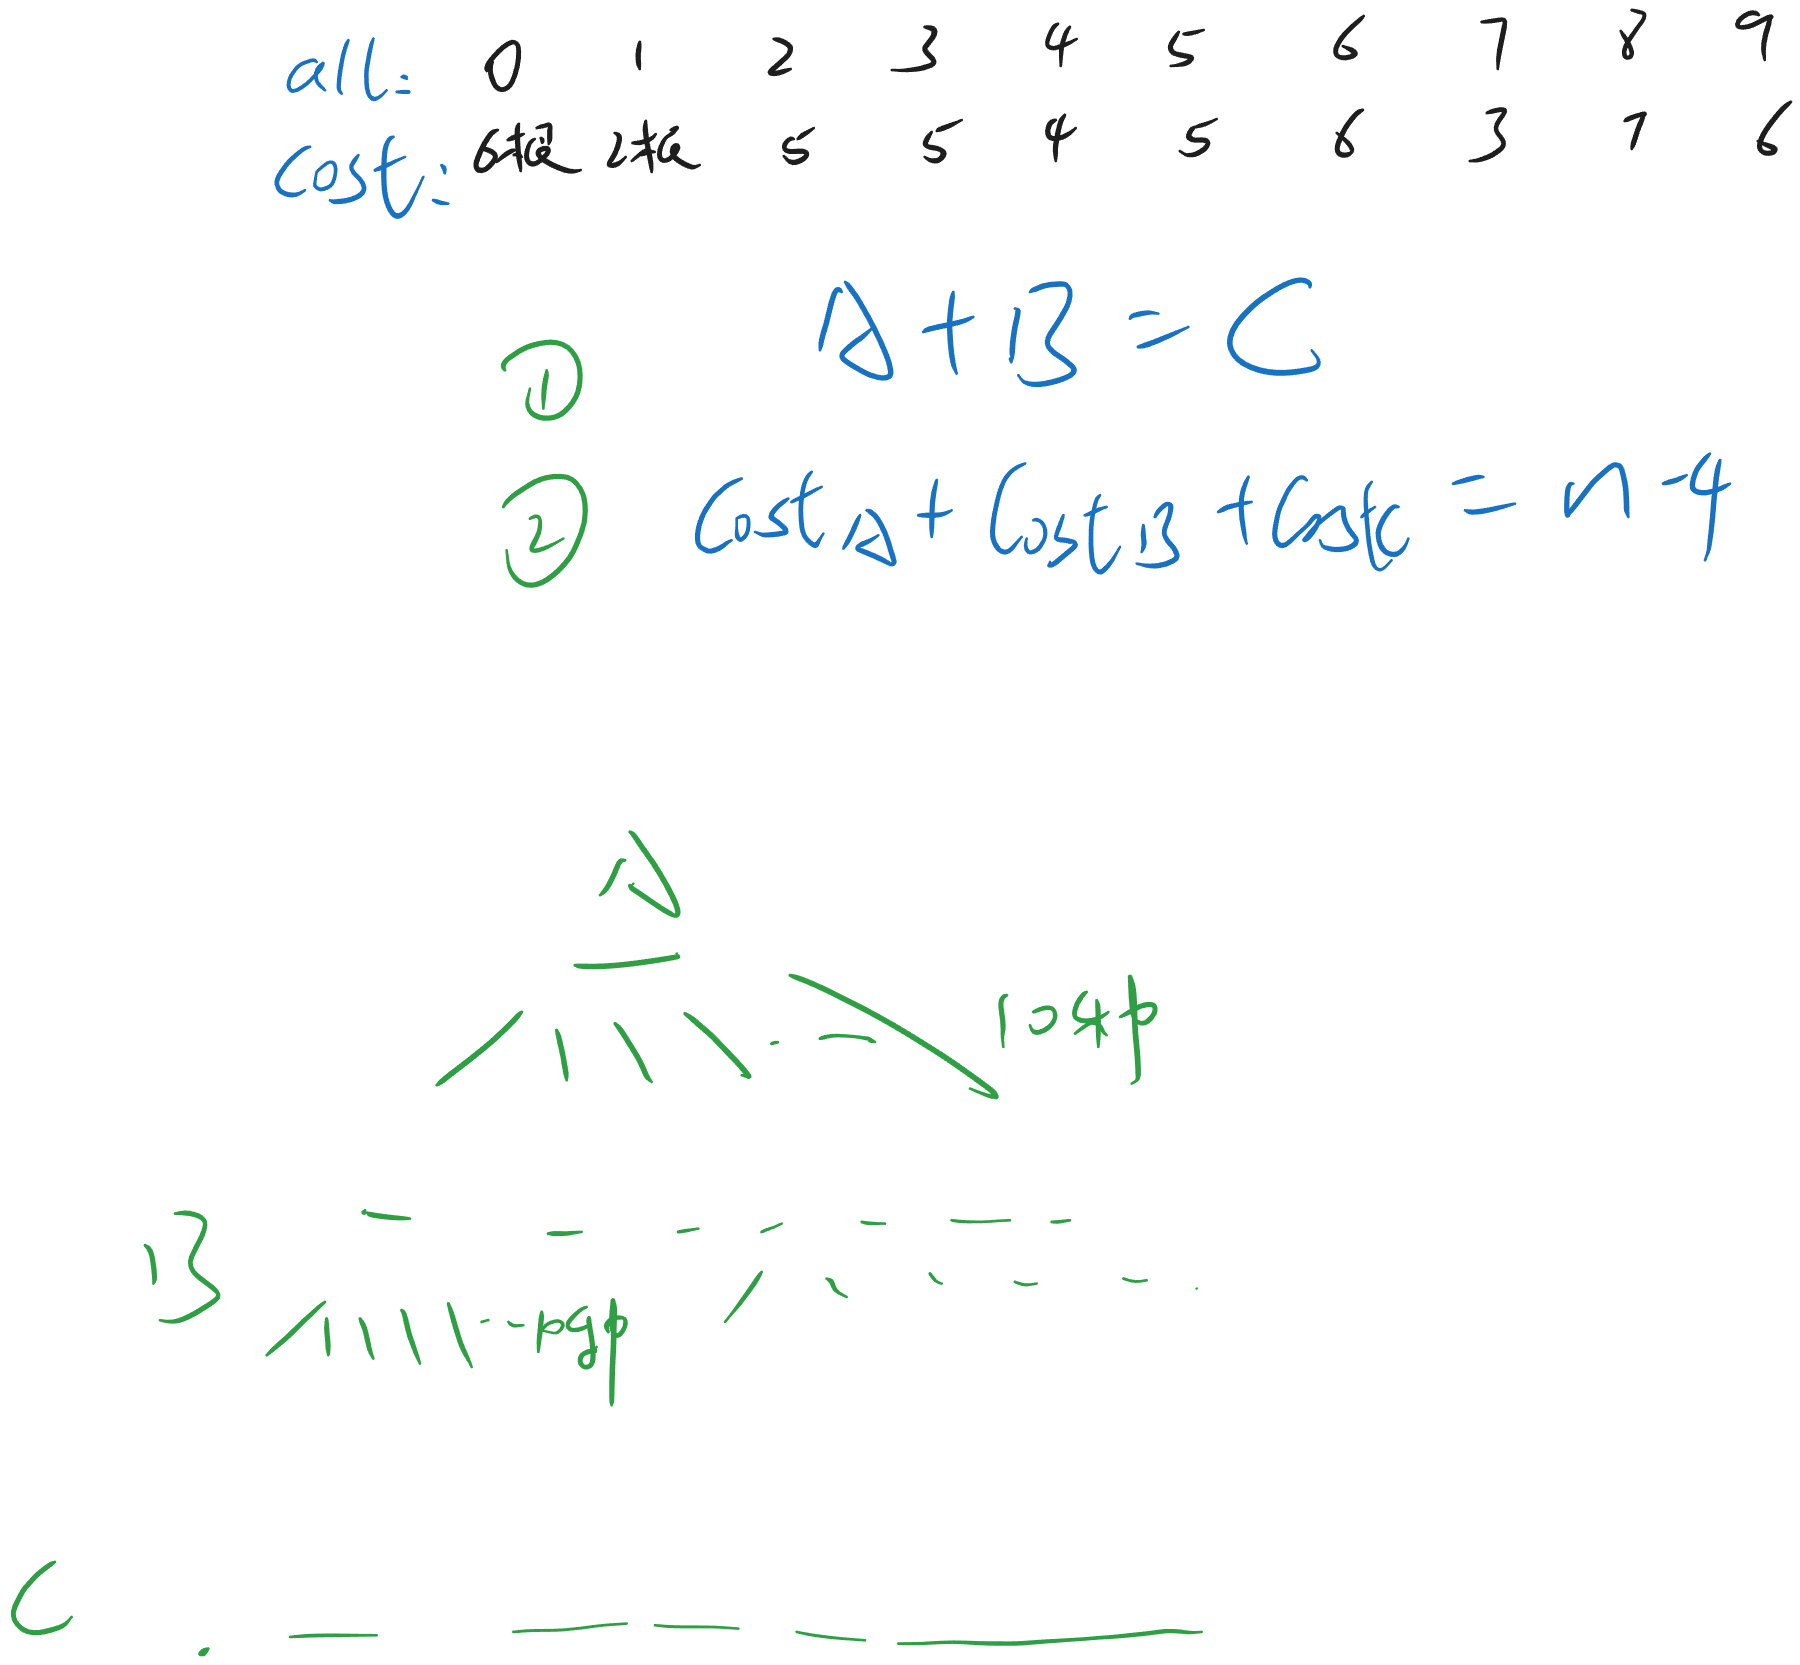 all: 0 1 2 3 4 5 6 7 8 9
cost: 6根 2根 5 5 4 5 6 3 7 6
① A+B=C
② Cost A + Cost B + Cost C = n-4
A
10中
B
C